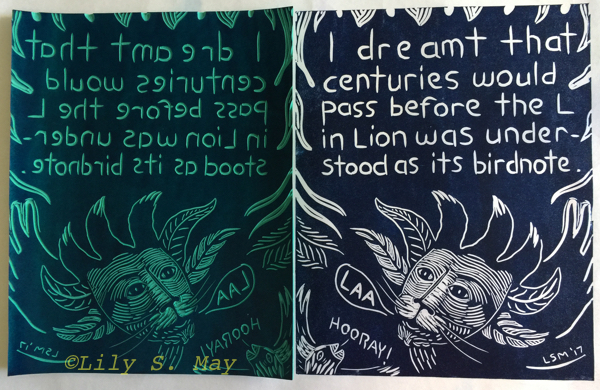 I dreamt that
centuries would
pass before the L
in Lion was under-
stood as its birdnote.
LAA
HOORAY!
LSM '17
©Lily S. May
I dreamt that
centuries would
pass before the L
in Lion was under-
stood as its birdnote.
LAA
HOORAY!
LSM '17